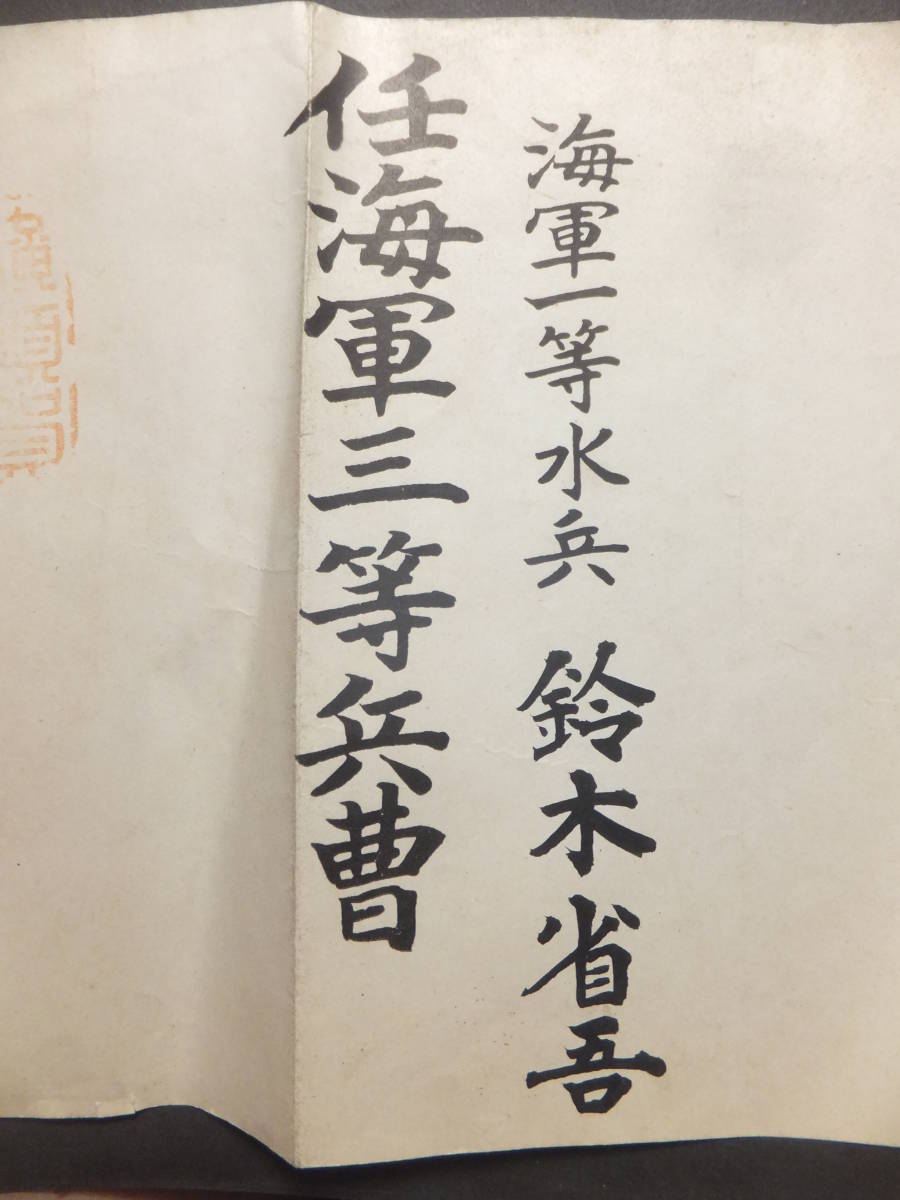 海軍一等水兵 鈴木省吾
任海軍三等兵曹